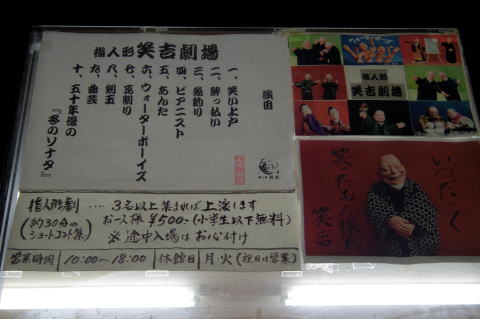 指人形 笑吉劇場
演目
一、笑い上戸
二、酔っ払い
三、魚釣り
四、ピアニスト
五、あんた
六、ウォーターボーイズ
七、瓦割り
八、剣玉
九、曲芸
十、五十年後の
『冬のソナタ』
指人形劇 ‥‥ 3名以上集まれば上演します
(約30分のショートコント集) お一人様 ¥500-(小学生以下無料)
※途中入場はお心付け
営業時間 10:00〜18:00 休館日 月・火(祝日は営業)
指人形
笑吉劇場
いつだって
笑ったもん勝ち
笑吉